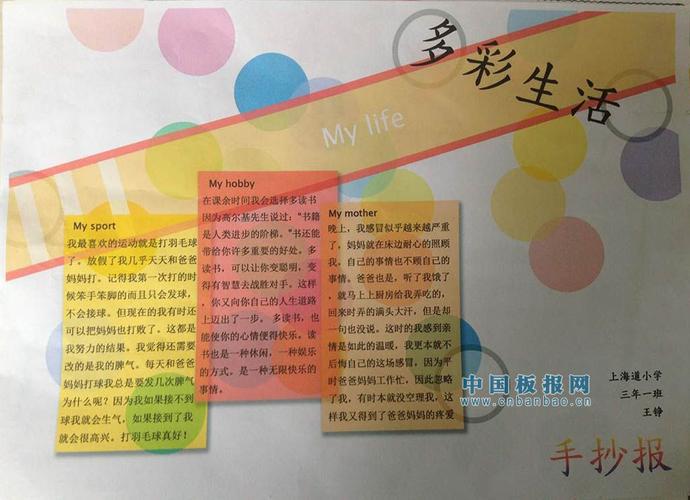 多彩生活
My life
My sport
我最喜欢的运动就是打羽毛球
了。放假了我几乎天天和爸爸
妈妈打。记得我第一次打的时
候笨手笨脚的而且只会发球，
不会接球。但现在的我有时还
可以把妈妈也打败了。这都是
我努力的结果。我觉得还需要
改的是我的脾气。每天和爸爸
妈妈打球我总是要发几次脾气
为什么呢？因为我如果接不到
球我就会生气，如果接到了我
就会很高兴。打羽毛球真好！
My hobby
在课余时间我会选择多读书
因为高尔基先生说过：“书籍
是人类进步的阶梯。”书还能
带给你许多重要的好处。多
读书，可以让你变聪明，变
得有智慧去战胜对手。这样
，你又向你自己的人生道路
上迈出了一步。 多读书，也
能使你的心情便得快乐。读
书也是一种休闲，一种娱乐
的方式，是一种无限快乐的
事情。
My mother
晚上，我感冒似乎越来越严重
了，妈妈就在床边耐心的照顾
我。自己的事情也不顾自己的
事情。爸爸也是，听了我饿了
，就马上上厨房给我弄吃的，
回来时弄的满头大汗，但是却
一句也没说。这时的我感到亲
情是如此的温暖，我更本就不
后悔自己的这场感冒。因为平
时爸爸妈妈工作忙，因此忽略
了我，有时本就没空理我，这
样我又得到了爸爸妈妈的疼爱
中国板报网
www.cnbanbao.cn
上海道小学
三年一班
王铮
手抄报